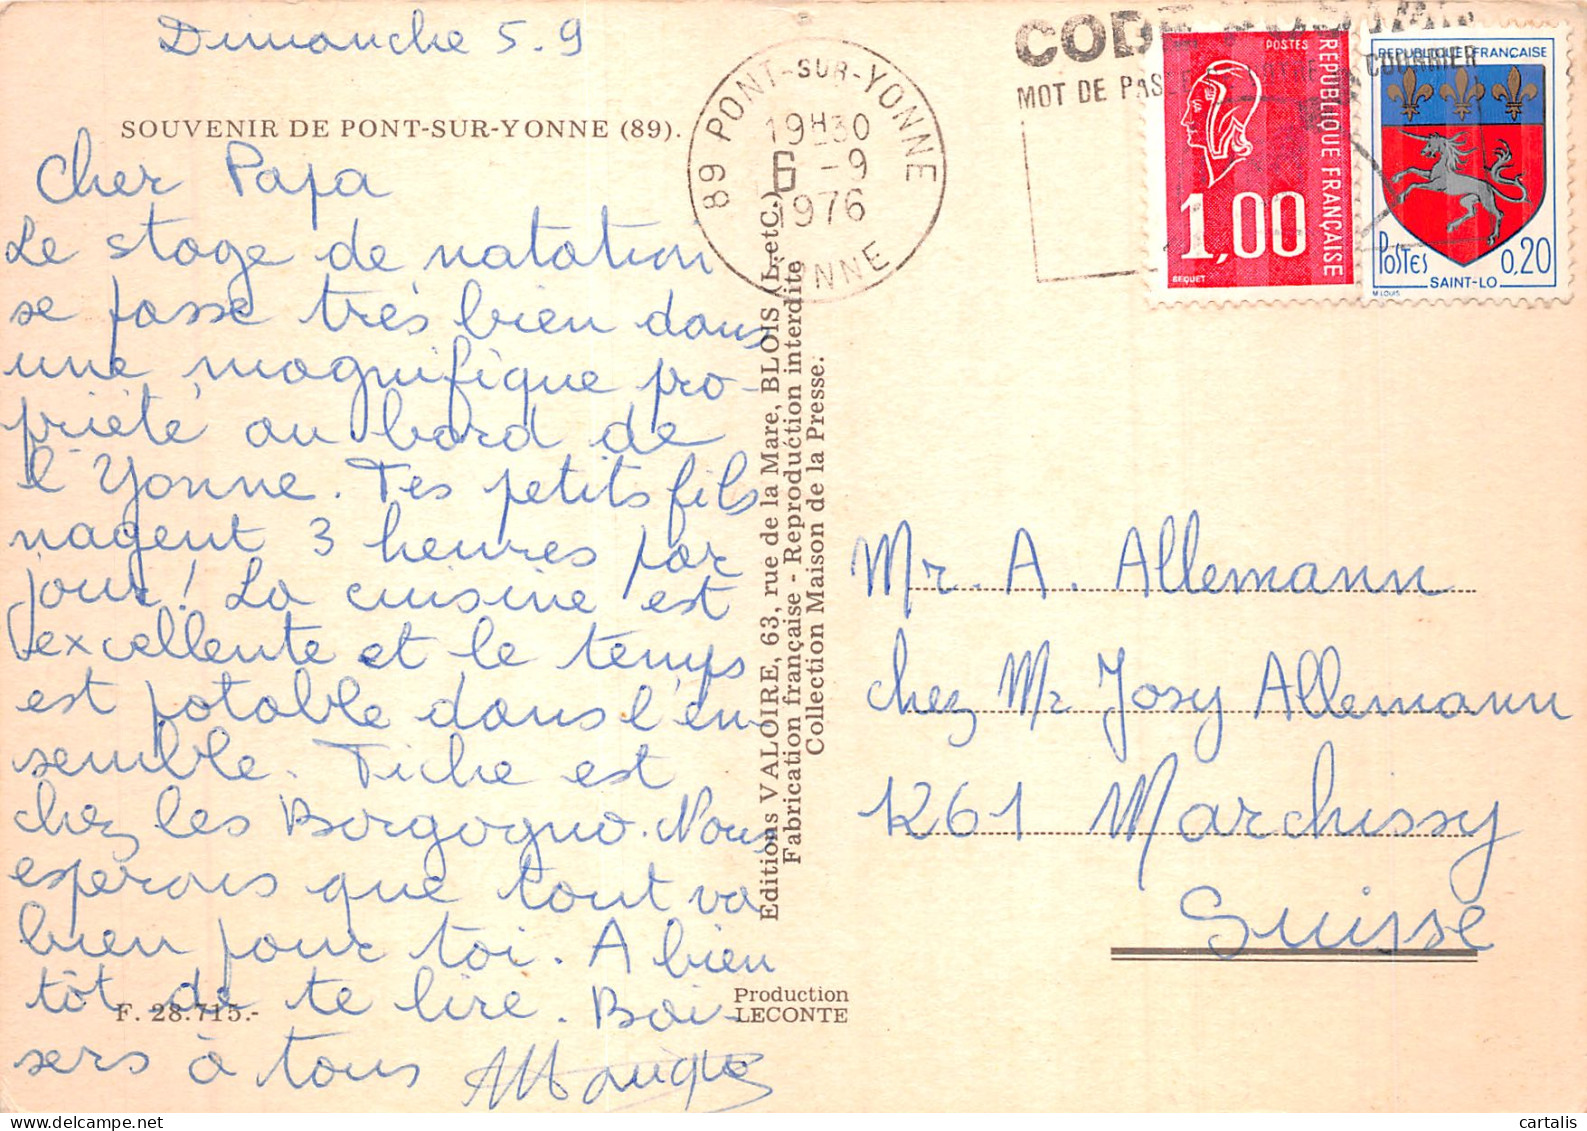 Dimanche 5.9
SOUVENIR DE PONT-SUR-YONNE (89).
Cher Papa
Le stage de natation
se passe très bien dans
une magnifique pro-
priété au bord de
l'Yonne. Tes petits fils
nagent 3 heures par
jour! La cuisine est
excellente et le temps
est potable dans l'en-
semble. Tiche est
chez les Borgogno. Nous
esperons que tout va
bien pour toi. A bien
tôt de te lire. Bai-
sers à tous
F. 28.715.-
Production
LECONTE
Editions VALOIRE, 63, rue de la Mare, BLOIS (L.etC.)
Fabrication française - Reproduction interdite
Collection Maison de la Presse.
89 PONT-SUR-YONNE
19H30
6 -9
1976
YONNE
CODE POSTAL
MOT DE PASSE DE VOTRE COURRIER
POSTES
REPUBLIQUE FRANÇAISE
1,00
BEQUET
REPUBLIQUE FRANÇAISE
POSTES 0,20
SAINT-LO
M.LOUIS
Mr. A. Allemann
chez Mr Josy Allemann
1261 Marchissy
Suisse
cartalis